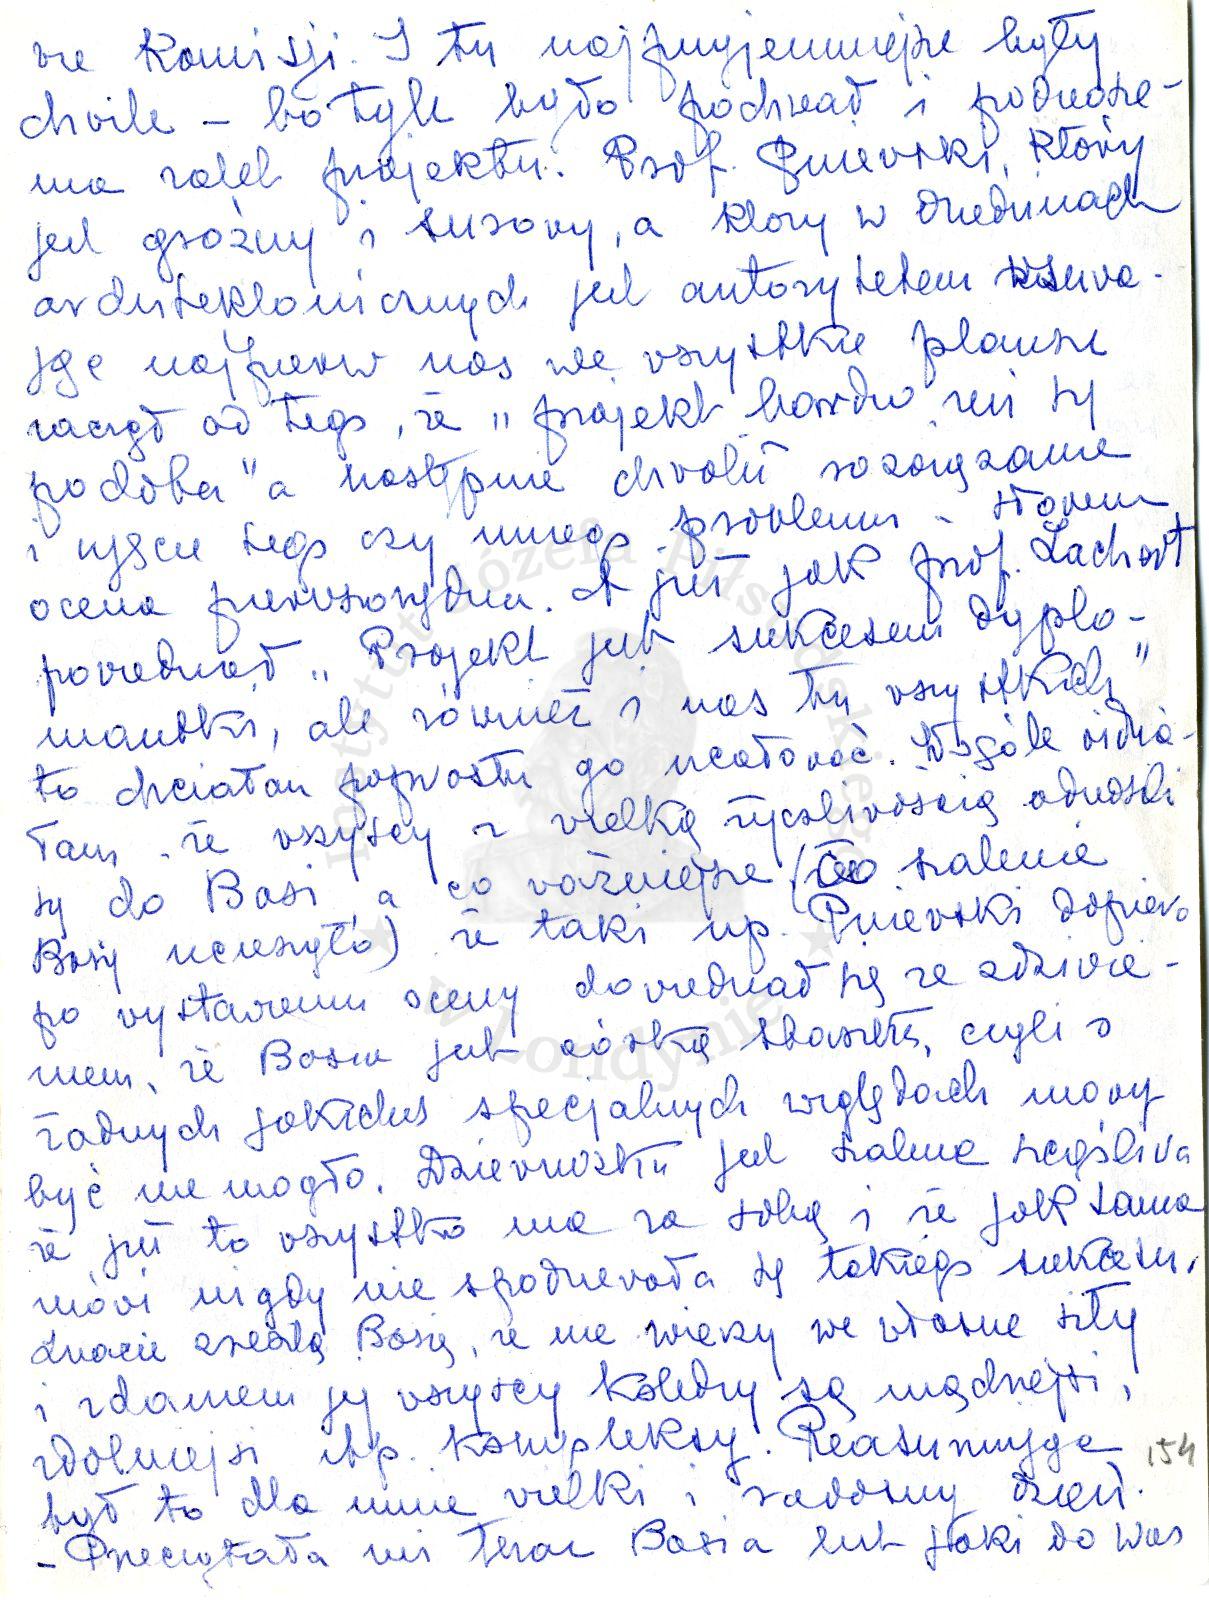 we Komisji. I tu najprzyjemniejsze były
chwile – bo tyle było pochwał i podnosze-
nia zalet projektu. Prof. Pniewski, który
jest groźny i surowy, a który w dziedzinach
architektonicznych jest autorytetem
najpierw nas we wszystkie plansze
zaczął od tego, że „projekt bardzo mi się
podoba" a następnie chwalił rozwiązanie
i ujęcie tego czy innego problemu – słowem
ocena pierwszorzędna. A już jak prof. Lachert
powiedział „Projekt jest sukcesem dyplo-
mantki, ale również i nas tu wszystkich"
to chciałam poprostu go ucałować. Wogóle widzia-
łam że wszyscy z wielką życzliwością odnosili
się do Basi, a co ważniejsze (co szalenie
Basię ucieszyło) że taki np. Pniewski dopiero
po wystawieniu oceny dowiedział się ze zdziwie-
niem, że Basia jest córką Staszka, czyli o
żadnych jakichś specjalnych względach mowy
być nie mogło. Dziewuszka jest szalenie szczęśliwa
że już to wszystko ma za sobą i że jak sama
mówi nigdy nie spodziewała się takiego sukcesu.
Znacie zresztą Basię, że nie wierzy we własne siły
i zdaniem jej wszyscy koledzy są mądrzejsi,
zdolniejsi itp. kompleksy. Reasumując
był to dla mnie wielki i radosny dzień.
– Przeczytała mi teraz Basia list jaki do Was
154
Instytut Józefa Piłsudskiego
w Londynie